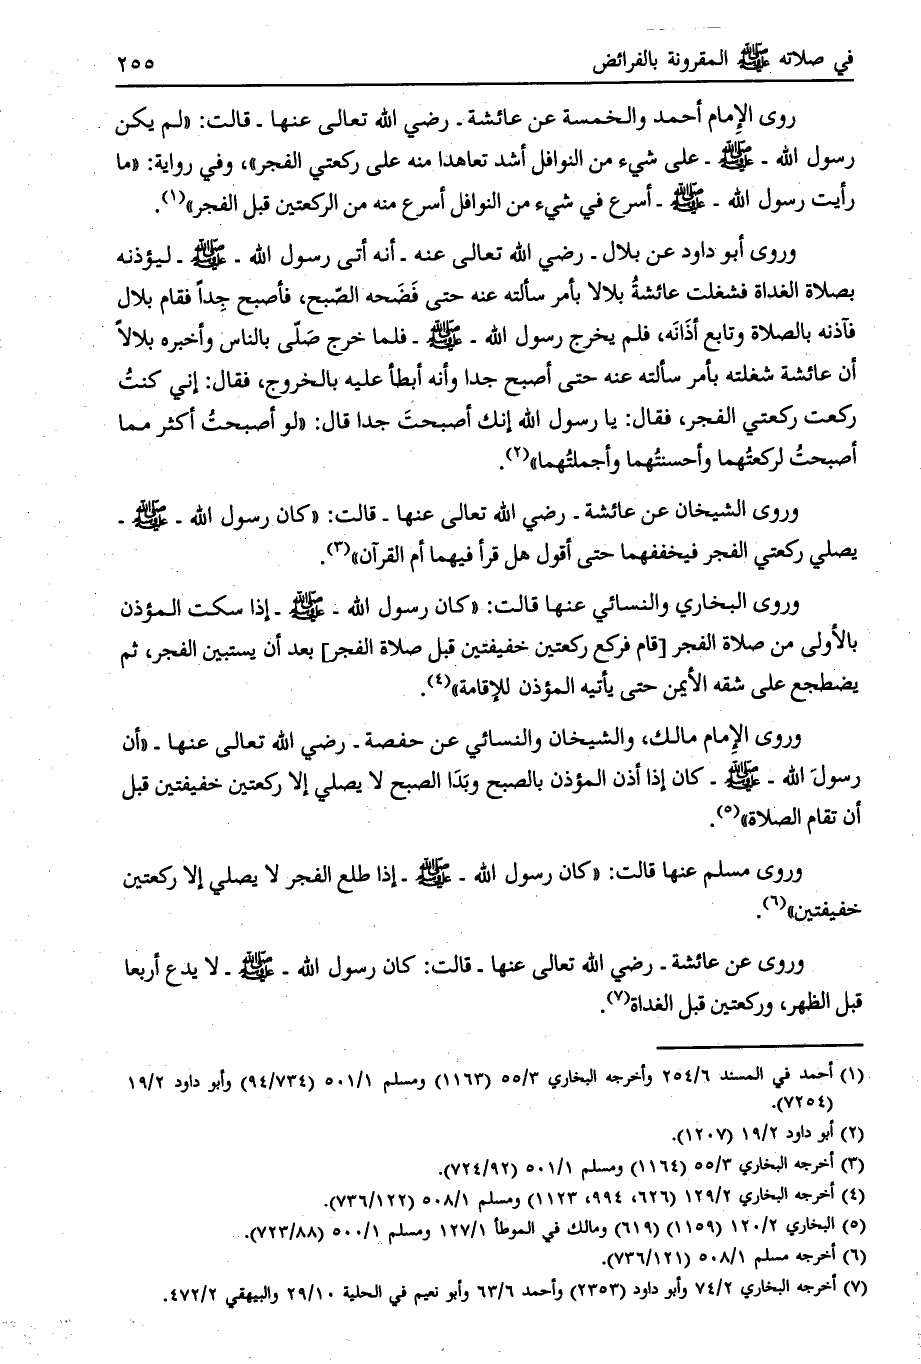 في صلاته ﷺ المقرونة بالفرائض ٢٥٥
روى الإمام أحمد والخمسة عن عائشة ـ رضي الله تعالى عنها ـ قالت: «لم يكن
رسول الله ـ ﷺ ـ على شيء من النوافل أشد تعاهدا منه على ركعتي الفجر»، وفي رواية: «ما
رأيت رسول الله ـ ﷺ ـ أسرع في شيء من النوافل أسرع منه من الركعتين قبل الفجر»(١).
وروى أبو داود عن بلال ـ رضي الله تعالى عنه ـ أنه أتى رسول الله ـ ﷺ ـ ليؤذنه
بصلاة الغداة فشغلت عائشةُ بلالا بأمر سألته عنه حتى فَضَحه الصّبح، فأصبح جِداً فقام بلال
فآذنه بالصلاة وتابع أذَانَه، فلم يخرج رسول الله ـ ﷺ ـ فلما خرج صَلّى بالناس وأخبره بلالاً
أن عائشة شغلته بأمر سألته عنه حتى أصبح جدا وأنه أبطأ عليه بالخروج، فقال: إني كنتُ
ركعت ركعتي الفجر، فقال: يا رسول الله إنك أصبحتَ جدا قال: «لو أصبحتُ أكثر مما
أصبحتُ لركعتُهما وأحسنتُهما وأجملتُهما»(٢).
وروى الشيخان عن عائشة ـ رضي الله تعالى عنها ـ قالت: «كان رسول الله ـ ﷺ ـ
يصلي ركعتي الفجر فيخففهما حتى أقول هل قرأ فيهما أم القرآن»(٣).
وروى البخاري والنسائي عنها قالت: «كان رسول الله ـ ﷺ ـ إذا سكت المؤذن
بالأولى من صلاة الفجر [قام فركع ركعتين خفيفتين قبل صلاة الفجر] بعد أن يستبين الفجر، ثم
يضطجع على شقه الأيمن حتى يأتيه المؤذن للإقامة»(٤).
وروى الإمام مالك، والشيخان والنسائي عن حفصة ـ رضي الله تعالى عنها ـ «أن
رسولَ الله ـ ﷺ ـ كان إذا أذن المؤذن بالصبح وبَدَا الصبح لا يصلي إلا ركعتين خفيفتين قبل
أن تقام الصلاة»(٥).
وروى مسلم عنها قالت: «كان رسول الله ـ ﷺ ـ إذا طلع الفجر لا يصلي إلا ركعتين
خفيفتين»(٦).
وروى عن عائشة ـ رضي الله تعالى عنها ـ قالت: كان رسول الله ـ ﷺ ـ لا يدع أربعا
قبل الظهر، وركعتين قبل الغداة(٧).
(١) أحمد في المسند ٢٥٤/٦ وأخرجه البخاري ٥٥/٣ (١١٦٣) ومسلم ٥٠١/١ (٩٤/٧٣٤) وأبو داود ١٩/٢
(٧٢٥٤).
(٢) أبو داود ١٩/٢ (١٢٠٧).
(٣) أخرجه البخاري ٥٥/٣ (١١٦٤) ومسلم ٥٠١/١ (٧٢٤/٩٢).
(٤) أخرجه البخاري ١٢٩/٢ (٦٢٦، ٩٩٤، ١١٢٣) ومسلم ٥٠٨/١ (٧٣٦/١٢٢).
(٥) البخاري ١٢٠/٢ (١١٥٩) (٦١٩) ومالك في الموطأ ١٢٧/١ ومسلم ٥٠٠/١ (٧٢٣/٨٨).
(٦) أخرجه مسلم ٥٠٨/١ (٧٣٦/١٢١).
(٧) أخرجه البخاري ٧٤/٢ وأبو داود (٢٣٥٣) وأحمد ٦٣/٦ وأبو نعيم في الحلية ٢٩/١٠ والبيهقي ٤٧٢/٢.